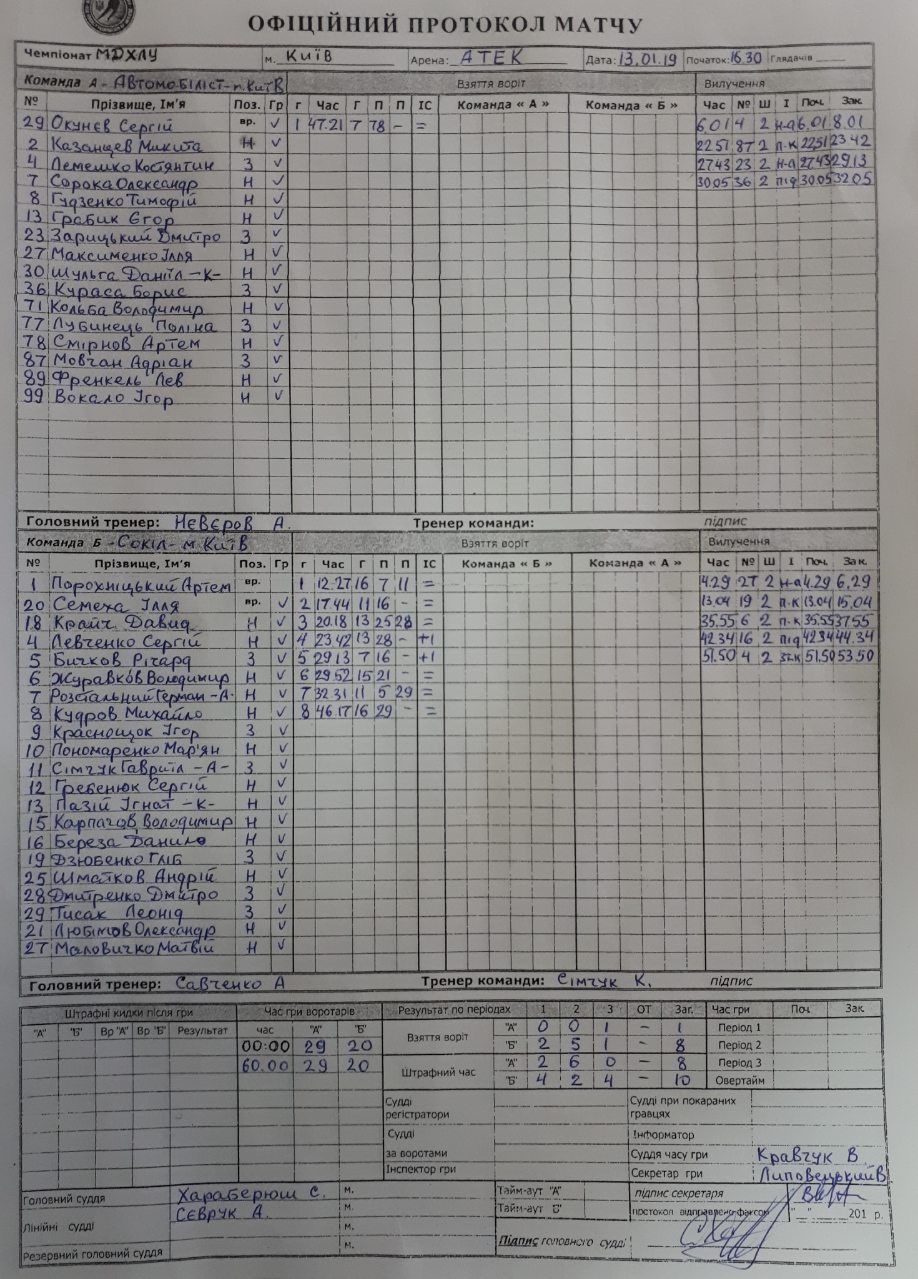 ОФІЦІЙНИЙ ПРОТОКОЛ МАТЧУ
Чемпіонат МДХЛУ м. Київ Арена: АТЕК Дата: 13.01.19 Початок: 16.30 Глядачів
Команда А - Автомобіліст - м. Київ Взяття воріт Вилучення
№ Прізвище, Ім'я Поз. Гр г Час Г П П ІС Команда « А » Команда « Б » Час № Ш І Поч. Зак.
29 Окунєв Сергій вр. ✓ 1 47.21 7 78 - = 6.01 4 2 н-а 6.01 8.01
2 Казанцев Микита Н ✓ 22.51 87 2 п-к 22.51 23.42
4 Лемешко Костянтин З ✓ 27.43 23 2 н-а 27.43 29.13
7 Сорока Олександр Н ✓ 30.05 36 2 під 30.05 32.05
8 Гудзенко Тимофій Н ✓
13 Грабик Єгор Н ✓
23 Зарицький Дмитро З ✓
27 Максименко Ілля Н ✓
30 Шульга Даніїл -К- Н ✓
36 Кураса Борис З ✓
71 Кольба Володимир Н ✓
77 Лубинець Поліна З ✓
78 Смірнов Артем Н ✓
87 Мовчан Адріан З ✓
89 Френкель Лев Н ✓
99 Вокало Ігор Н ✓
Головний тренер: Нєвєров А. Тренер команди: підпис
Команда Б - Сокіл - м. Київ Взяття воріт Вилучення
№ Прізвище, Ім'я Поз. Гр г Час Г П П ІС Команда « Б » Команда « А » Час № Ш І Поч. Зак.
1 Порохніцький Артем вр. 1 12.27 16 7 11 = 4.29 27 2 н-а 4.29 6.29
20 Семеха Ілля вр. ✓ 2 17.44 11 16 - = 13.04 19 2 п-к 13.04 15.04
18 Крайч Давид Н ✓ 3 20.18 13 25 28 = 35.55 6 2 п-к 35.55 37.55
4 Левченко Сергій Н ✓ 4 23.42 13 28 - +1 42.34 16 2 під 42.34 44.34
5 Бичков Річард З ✓ 5 29.13 7 16 - +1 51.50 4 2 51.50 53.50
6 Журавков Володимир Н ✓ 6 29.52 15 21 - =
7 Розстальний Герман -А- Н ✓ 7 32.31 11 5 29 =
8 Кудров Михайло Н ✓ 8 46.17 16 29 - =
9 Краснощок Ігор З ✓
10 Пономаренко Мар'ян Н ✓
11 Сімчук Гавриїл -А- З ✓
12 Гребенюк Сергій Н ✓
13 Пазій Ігнат -К- Н ✓
15 Карпачов Володимир Н ✓
16 Береза Данило Н ✓
19 Дзюбенко Гліб З ✓
25 Шматков Андрій Н ✓
28 Дмитренко Дмитро З ✓
29 Тисак Леонід З ✓
21 Любімов Олександр Н ✓
27 Маловичко Матвій Н ✓
Головний тренер: Савченко А Тренер команди: Сімчук К. підпис
Штрафні кидки після гри Час гри воротарів Результат по періодах 1 2 3 ОТ Заг. Час гри Поч. Зак.
"А" "Б" Вр "А" Вр "Б" Результат час "А" "Б" Взяття воріт "А" 0 0 1 - 1 Період 1
00:00 29 20 "Б" 2 5 1 - 8 Період 2
60.00 29 20 Штрафний час "А" 2 6 0 - 8 Період 3
"Б" 4 2 4 - 10 Овертайм
Судді реєстратори Судді при покараних гравцях
Судді за воротами Інформатор
Суддя часу гри Кравчук В
Інспектор гри Секретар гри Липовецький В
Головний суддя Хараберюш С. м. Тайм-аут "А" підпис секретаря
Лінійні судді Сєврук А. м. Тайм-аут "Б" протокол відправлено факсом " " 201 р.
м.
Резервний головний суддя м. Підпис головного судді